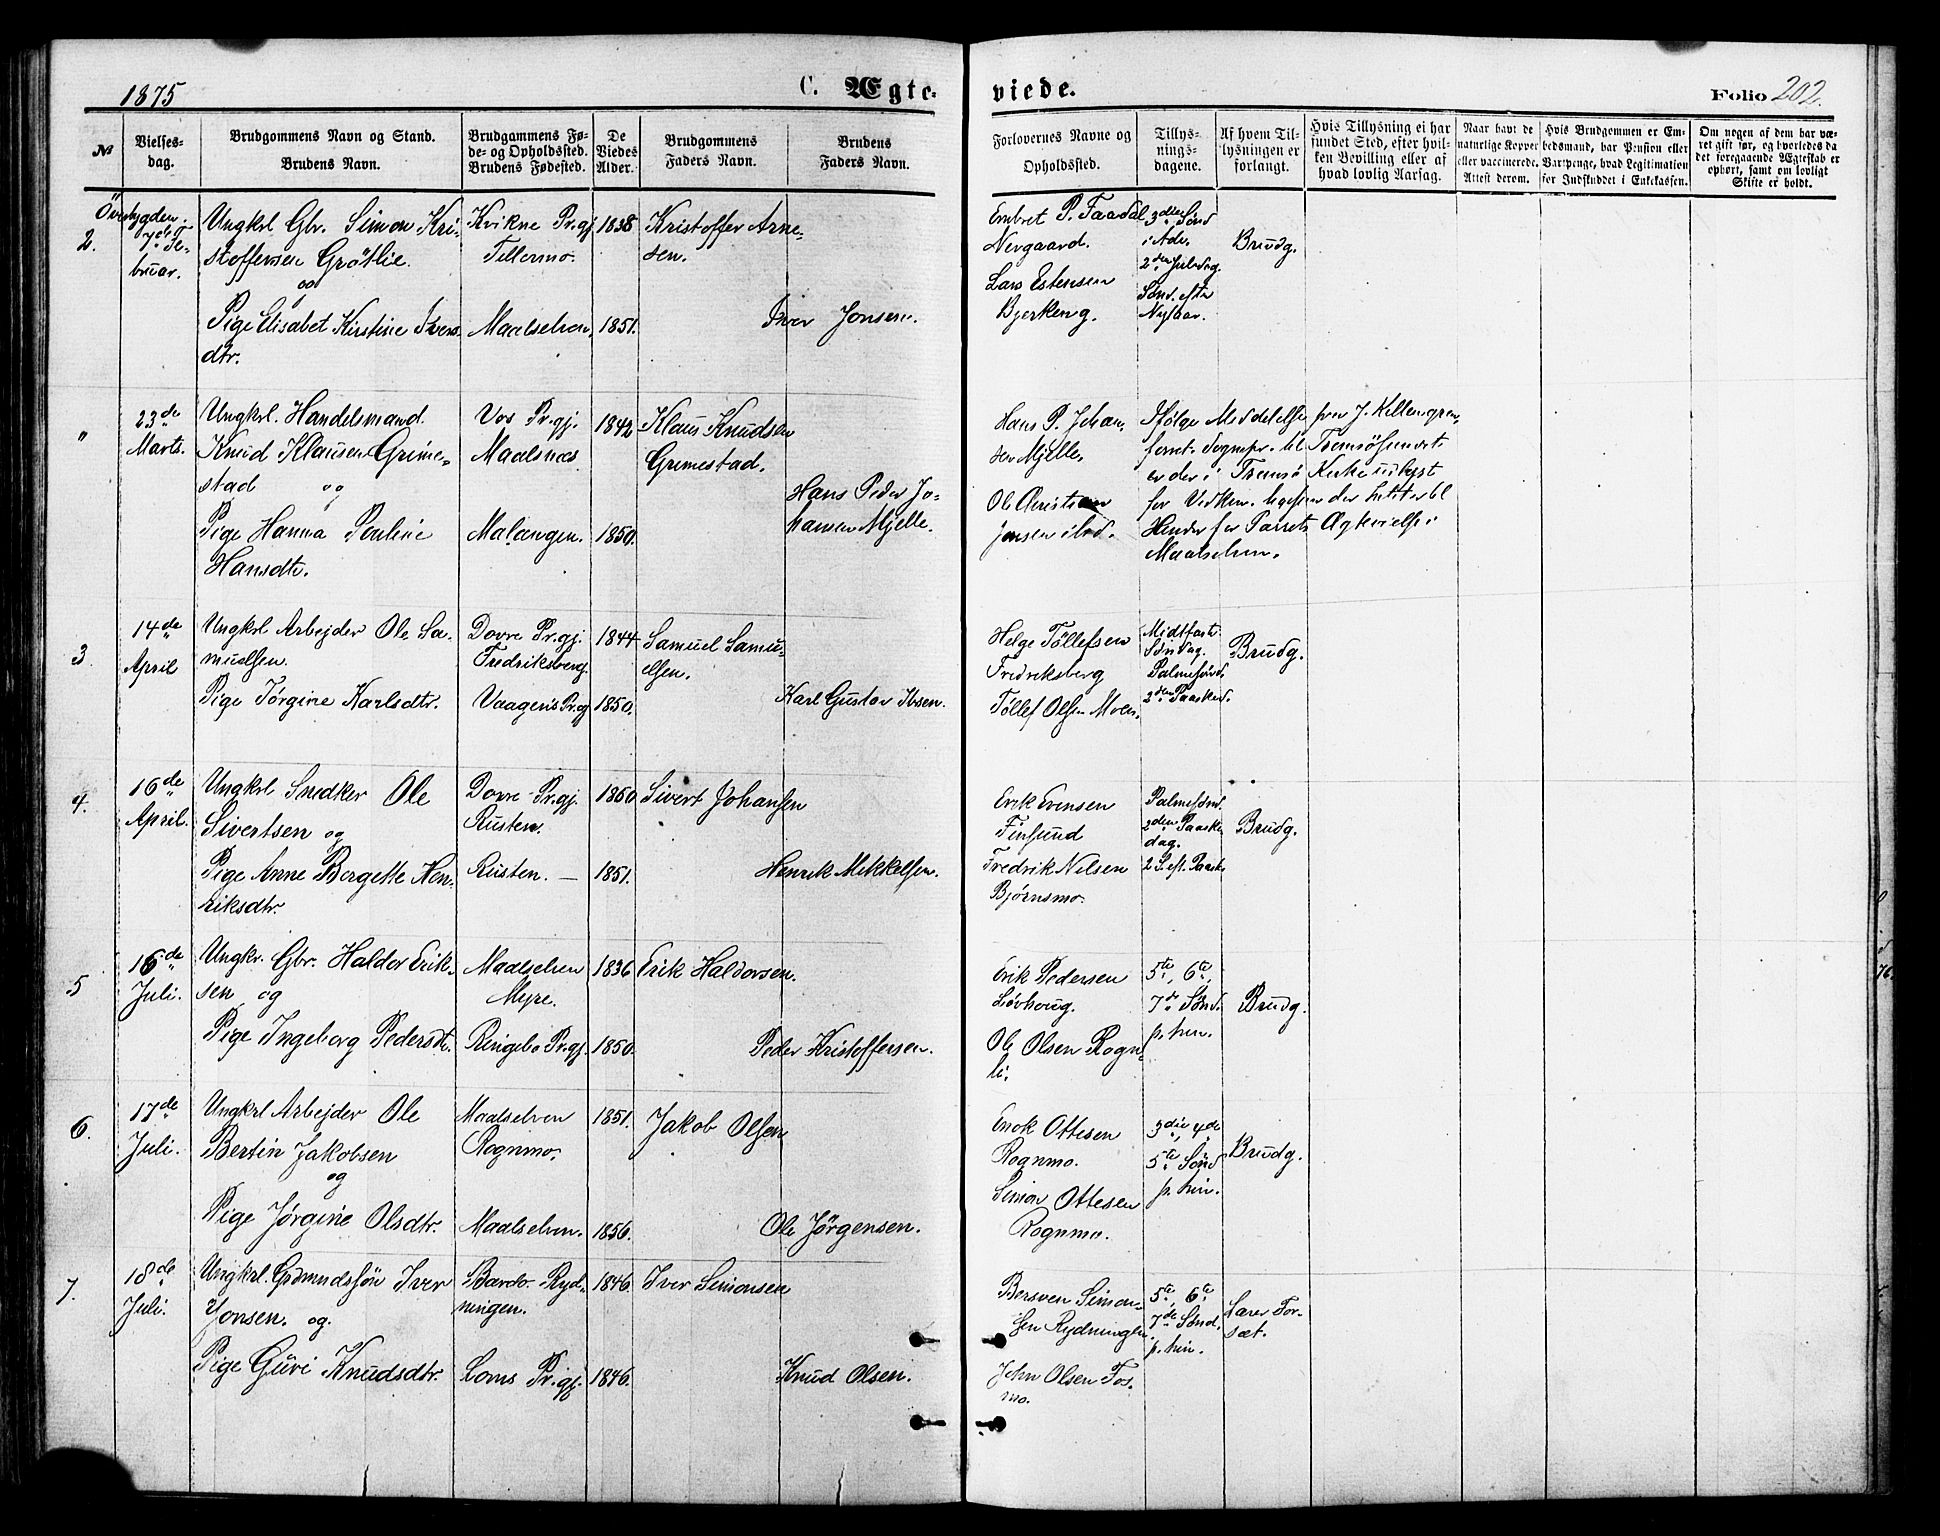 1875
C. Ægte-
viede.
Folio 202.
№
Vielses-
dag.
Brudgommens Navn og Stand.
Brudens Navn.
Brudgommens Fø-
de- og Opholdssted.
Brudens Fødested.
De
Viedes
Alder.
Brudgommens
Faders Navn.
Brudens
Faders Navn.
Forlovernes Navne og
Opholdssted.
Tillys-
nings-
dagene.
Af hvem Til-
lysningen er
forlangt.
Hvis Tillysning ei har
fundet Sted, efter hvil-
ken Bevilling eller af
hvad lovlig Aarsag.
Naar havt de
naturlige Kopper
eller vaccinerede.
Attest derom.
Hvis Brudgommen er Em-
bedsmand, har Pension eller
Vartpenge, hvad Legitimation
for Indskuddet i Enkekassen.
Om nogen af dem har væ-
ret gift før, og hvorledes da
det foregaaende Ægteskab er
ophørt, samt om lovligt
Skifte er holdt.
Överbygden.
2.
7de Fe-
bruar.
Ungkrl Gbr. Simon Kri-
stoffersen Grötlie
og
Pige Elisabet Kirstine Ivers
dtr.
Kvikne Pr.gj
Tellermo.
Maalselven
1838
1851.
Kristoffer Arne-
sen.
Iver Jonsen.
Embret P. Faadal
Nergaard.
Lars Estensen
Bjerkeng.
3die Sønd
i Adv.
2den Juledag.
Sönd. efter
Nytaar.
Brudg.
"
23de
Marts.
Ungkrl. Handelsmand
Knud Klausen Grime-
stad og
Pige Hanna Pauline
Hansdtr.
Vos Pr.gj.
Maalsnes
Malangen.
1842
1850.
Klaus Knudsen
Grimestad.
Hans Peder Jo-
hansen Mjelle.
Hans P. Johan-
sen Mjelle,
Ol Christian
Jensen ibd.
Ifølge Meddelelse fra J. Killengren
Sognepr. til Tromsösundet
er der i Tromsö Kirke
for Vedkom.
Hinder for Parrets Ægtevielse i
Maalselven.
3.
14de
April
Ungkrl Arbejder Ole Sa-
muelsen.
Pige Jørgine Karlsdtr.
Dovre Pr.gj.
Fredriksberg
Vaagens Pr.gj
1844
1850.
Samuel Samu-
elsen.
Karl Gustav Ibsen.
Helge Töllefsen
Fredriksberg
Töllef Olsen Moen.
Midtfaste
Søndag.
Palmesønd.
2den Paasked.
Brudg.
4.
16de
April.
Ungkrl Snedker Ole
Sivertsen og
Pige Anne Bergette Hen-
riksdtr.
Dovre Pr.gj.
Rusten.
Rusten. —
1860
1851.
Sivert Johansen
Henrik Mikkelsen.
Erik Evensen
Finsund
Fredrik Nilsen
Bjørnsmo.
Palmesønd.
2den Paaske
dag.
2 S. eft. Paaske
Brudg.
5
16de
Juli.
Ungkr. Gbr. Haldor Erik-
sen og
Pige Ingeborg Pedersdtr.
Maalselven
Myre.
Ringebo Pr.gj.
1836
1850.
Erik Haldorsen.
Peder Kristoffersen.
Erik Pedersen
Lövhoug.
Ole Olsen Rogn-
li.
5te, 6te,
7de Sønd.
p. trin.
Brudg.
6.
17de
Juli.
Ungkrl Arbejder Ole
Bertin Jakobsen
og
Pige Jørgine Olsdtr.
Maalselven
Rognmo.
Maalselven.
1851.
1856.
Jakob Olsen
Ole Jørgensen.
Enok Ottesen
Rognmo.
Simon Ottesen
Rognmo.
3die, 4de
5te Sönd
p. trin.
Brudg.
7.
18de
Juli.
Ungkrl. Grdmandssön Iver
Jonsen. og.
Pige Guri Knudsdtr.
Bardo Ryd-
ningen.
Loms Pr.gj.
1846.
1846.
Iver Simonsen
Knud Olsen.
Bersven Simon-
sen Rydningen
John Olsen Fos-
mo.
5te, 6te
7de Sönd.
p. trin.
Lærer For-
sæt.